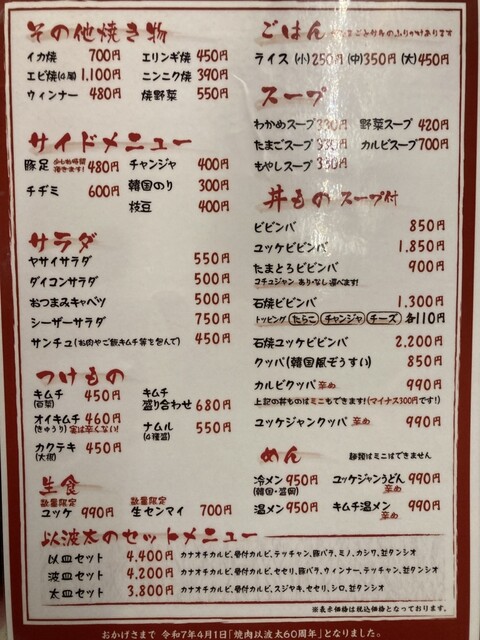 その他焼き物
イカ焼 700円 エリンギ焼 450円
エビ焼(4尾) 1,100円 ニンニク焼 390円
ウィンナー 480円 焼野菜 550円
サイドメニュー
豚足 少しお時間頂きます! 480円 チャンジャ 400円
チヂミ 600円 韓国のり 300円
枝豆 400円
サラダ
ヤサイサラダ 550円
ダイコンサラダ 500円
おつまみキャベツ 500円
シーザーサラダ 750円
サンチュ(お肉やご飯キムチ等を包んで) 450円
つけもの
キムチ(白菜) 450円 キムチ盛り合わせ 680円
オイキムチ(きゅうり) 460円 実は辛くない! ナムル(4種盛) 550円
カクテキ(大根) 450円
生食
数量限定 ユッケ 990円 数量限定 生センマイ 700円
ごはん ふりかけあります
ライス (小)250円 (中)350円 (大)450円
スープ
わかめスープ 330円 野菜スープ 420円
たまごスープ 330円 カルビスープ 700円
もやしスープ 330円
丼もの スープ付
ビビンバ 850円
ユッケビビンバ 1,850円
たまとろビビンバ 900円
コチュジャン あり・なし 選べます!
石焼ビビンバ 1,300円
トッピング たらこ チャンジャ チーズ 各110円
石焼ユッケビビンバ 2,200円
クッパ(韓国風ぞうすい) 850円
カルビクッパ 辛め 990円
上記の丼ものはミニもできます!(マイナス300円です!)
ユッケジャンクッパ 辛め 990円
めん 麺類はミニはできません
冷メン(韓国・盛岡) 950円 ユッケジャンうどん 辛め 990円
温メン 950円 キムチ温メン 辛め 990円
以波太のセットメニュー
以皿セット 4,400円 カナオチカルビ、骨付カルビ、テッチャン、豚バラ、ミノ、カシワ、並タンシオ
波皿セット 4,200円 カナオチカルビ、骨付カルビ、セセリ、豚バラ、ウィンナー、テッチャン、並タンシオ
太皿セット 3,800円 カナオチカルビ、骨付カルビ、スジヤキ、セセリ、シロ、並タンシオ
※表示価格は税込価格となっております。
おかげさまで 令和7年4月1日「焼肉以波太60周年」となりました。